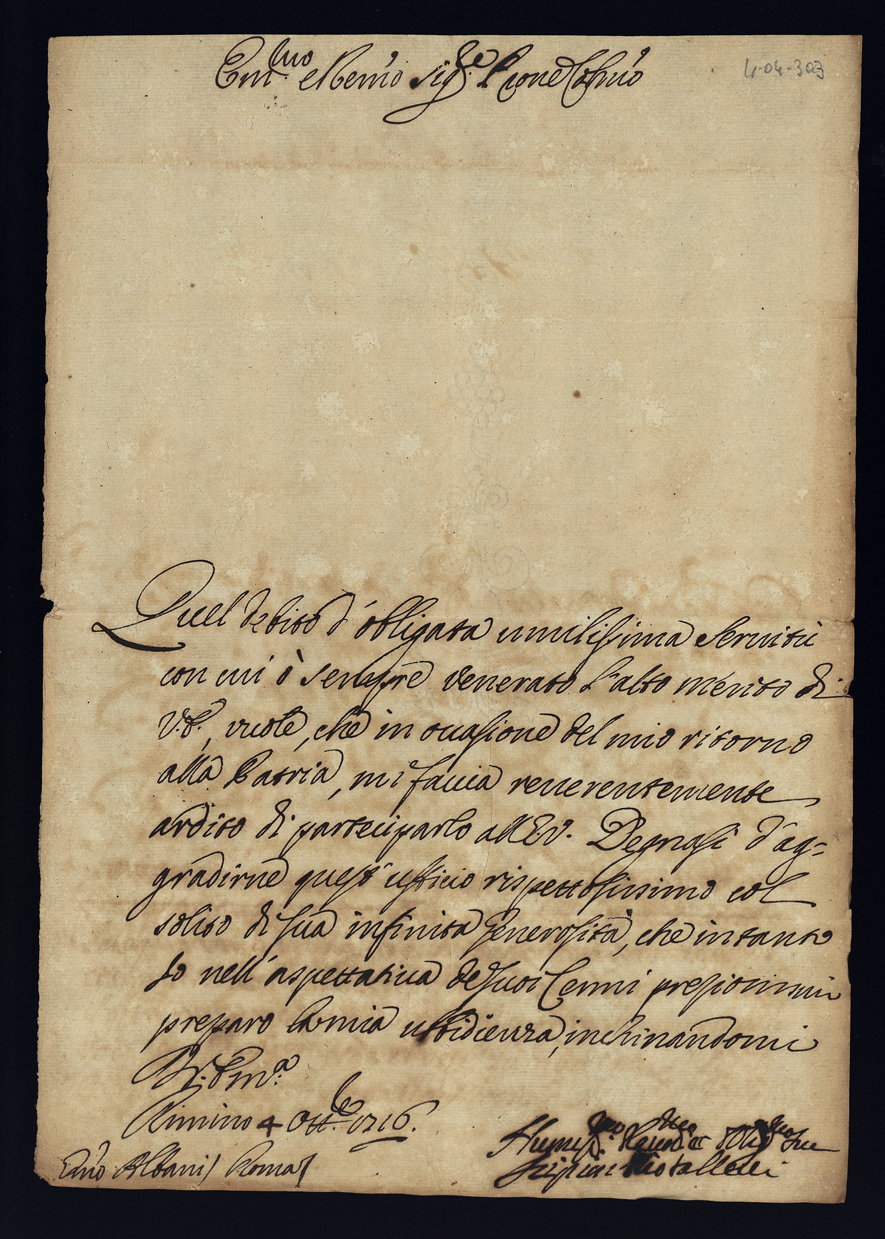 Em.mo e Rev.mo Sig.re P.rone Col.mo
4-04-303
Quel debito d'obligata umilissima servitù
con cui ò sempre venerato l'alto merito di
V.E., vuole, che in occasione del mio ritorno
alla Patria, mi faccia reverentemente
ardito di participarlo all'E.V. Degnasi d'ag=
gradirne quest'ufficio rispettosissimo col
solito di sua infinita generosità, che intanto
Io nell'aspettativa de suoi Cenni preziosissimi
preparo la mia ubbidienza, inchinandomi
A V. Em.a
Rimino 4 Ott.bre 1716.
Em.o Albani / Roma /